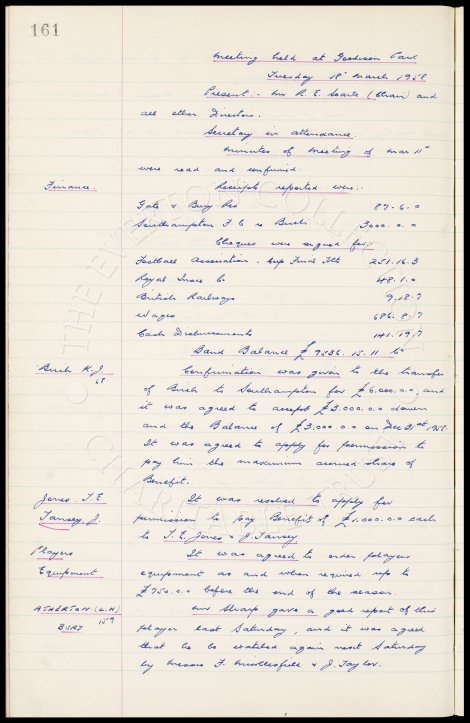 161
Meeting held at Goodison Park
Tuesday 18' March 1958
Present:- Mr R. E. Searle (Chair) and
all other Directors.
Secretary in attendance
Minutes of meeting of Mar 11"
were read and confirmed.
Finance. Receipts reported were:-
Gate & Burys Res 27-6-0
Southampton F.C. re Birch 3000.0.0
Cheques were signed for:-
Football Association - Cup Final Tkts 251.16.3
Royal Insce Co 48.1.0
British Railways 9.18.7
Wages 686.8.7
Cash Disbursements 141.19.7
Bank Balance £9236.15.11 Cr
Birch K.J. Confirmation was given to the transfer
68 of Birch to Southampton for £6,000.0.0 and
it was agreed to accept £3.000.0.0 down
and the Balance of £3,000.0.0 on Dec 31st 1958
It was agreed to apply for permission to
pay him the maximum accrued share of
Benefit.
Jones T.E It was resolved to apply for
Tansey J. permission to pay Benefit of £1.000.0.0 each
to T.E. Jones & J. Tansey
Players It was agreed to order players
Equipment equipment as and when required up to
£750.0.0 before the end of the season.
ATHERTON (L.H) Mr Sharp gave a good report of this
BURY 159 player last Saturday, and it was agreed
that he be watched again next Saturday
by Messrs F. Micklesfield & J. Taylor.
THE EVERTON COLLECTION
CHARITABLE TRUST